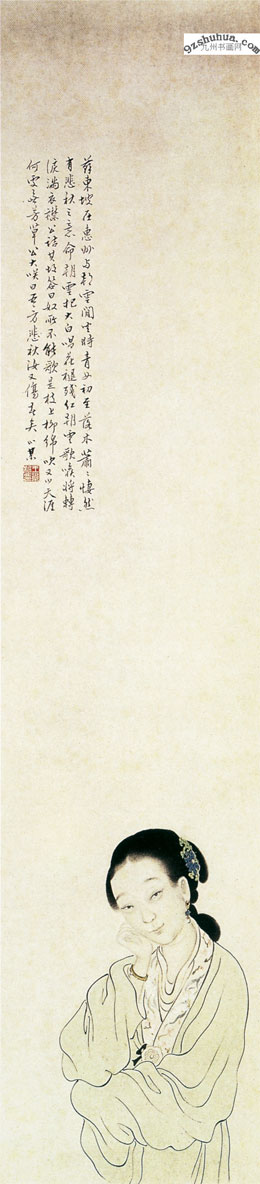 蘓東坡在惠州与朝雲閒坐時青女初至落木蕭々悽然
有悲秋之意命朝雲把大白唱花褪残红朝雲歌喉将轉
淚滿衣襟公詰其故答曰奴所不能歌是枝上柳绵吹又少天涯
何處無芳草公大咲曰吾方悲秋汝又傷春矣
9zshuhua.com
九州书画网